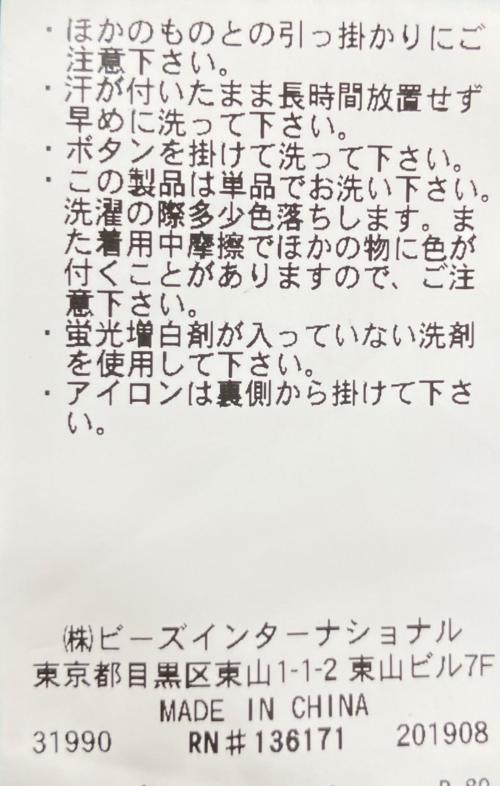 ・ほかのものとの引っ掛かりにご
注意下さい。
・汗が付いたまま長時間放置せず
早めに洗って下さい。
・ボタンを掛けて洗って下さい。
・この製品は単品でお洗い下さい。
洗濯の際多少色落ちします。ま
た着用中摩擦でほかの物に色が
付くことがありますので、ご注
意下さい。
・蛍光増白剤が入っていない洗剤
を使用して下さい。
・アイロンは裏側から掛けて下さ
い。
㈱ビーズインターナショナル
東京都目黒区東山1-1-2 東山ビル7F
MADE IN CHINA
31990 RN#136171 201908